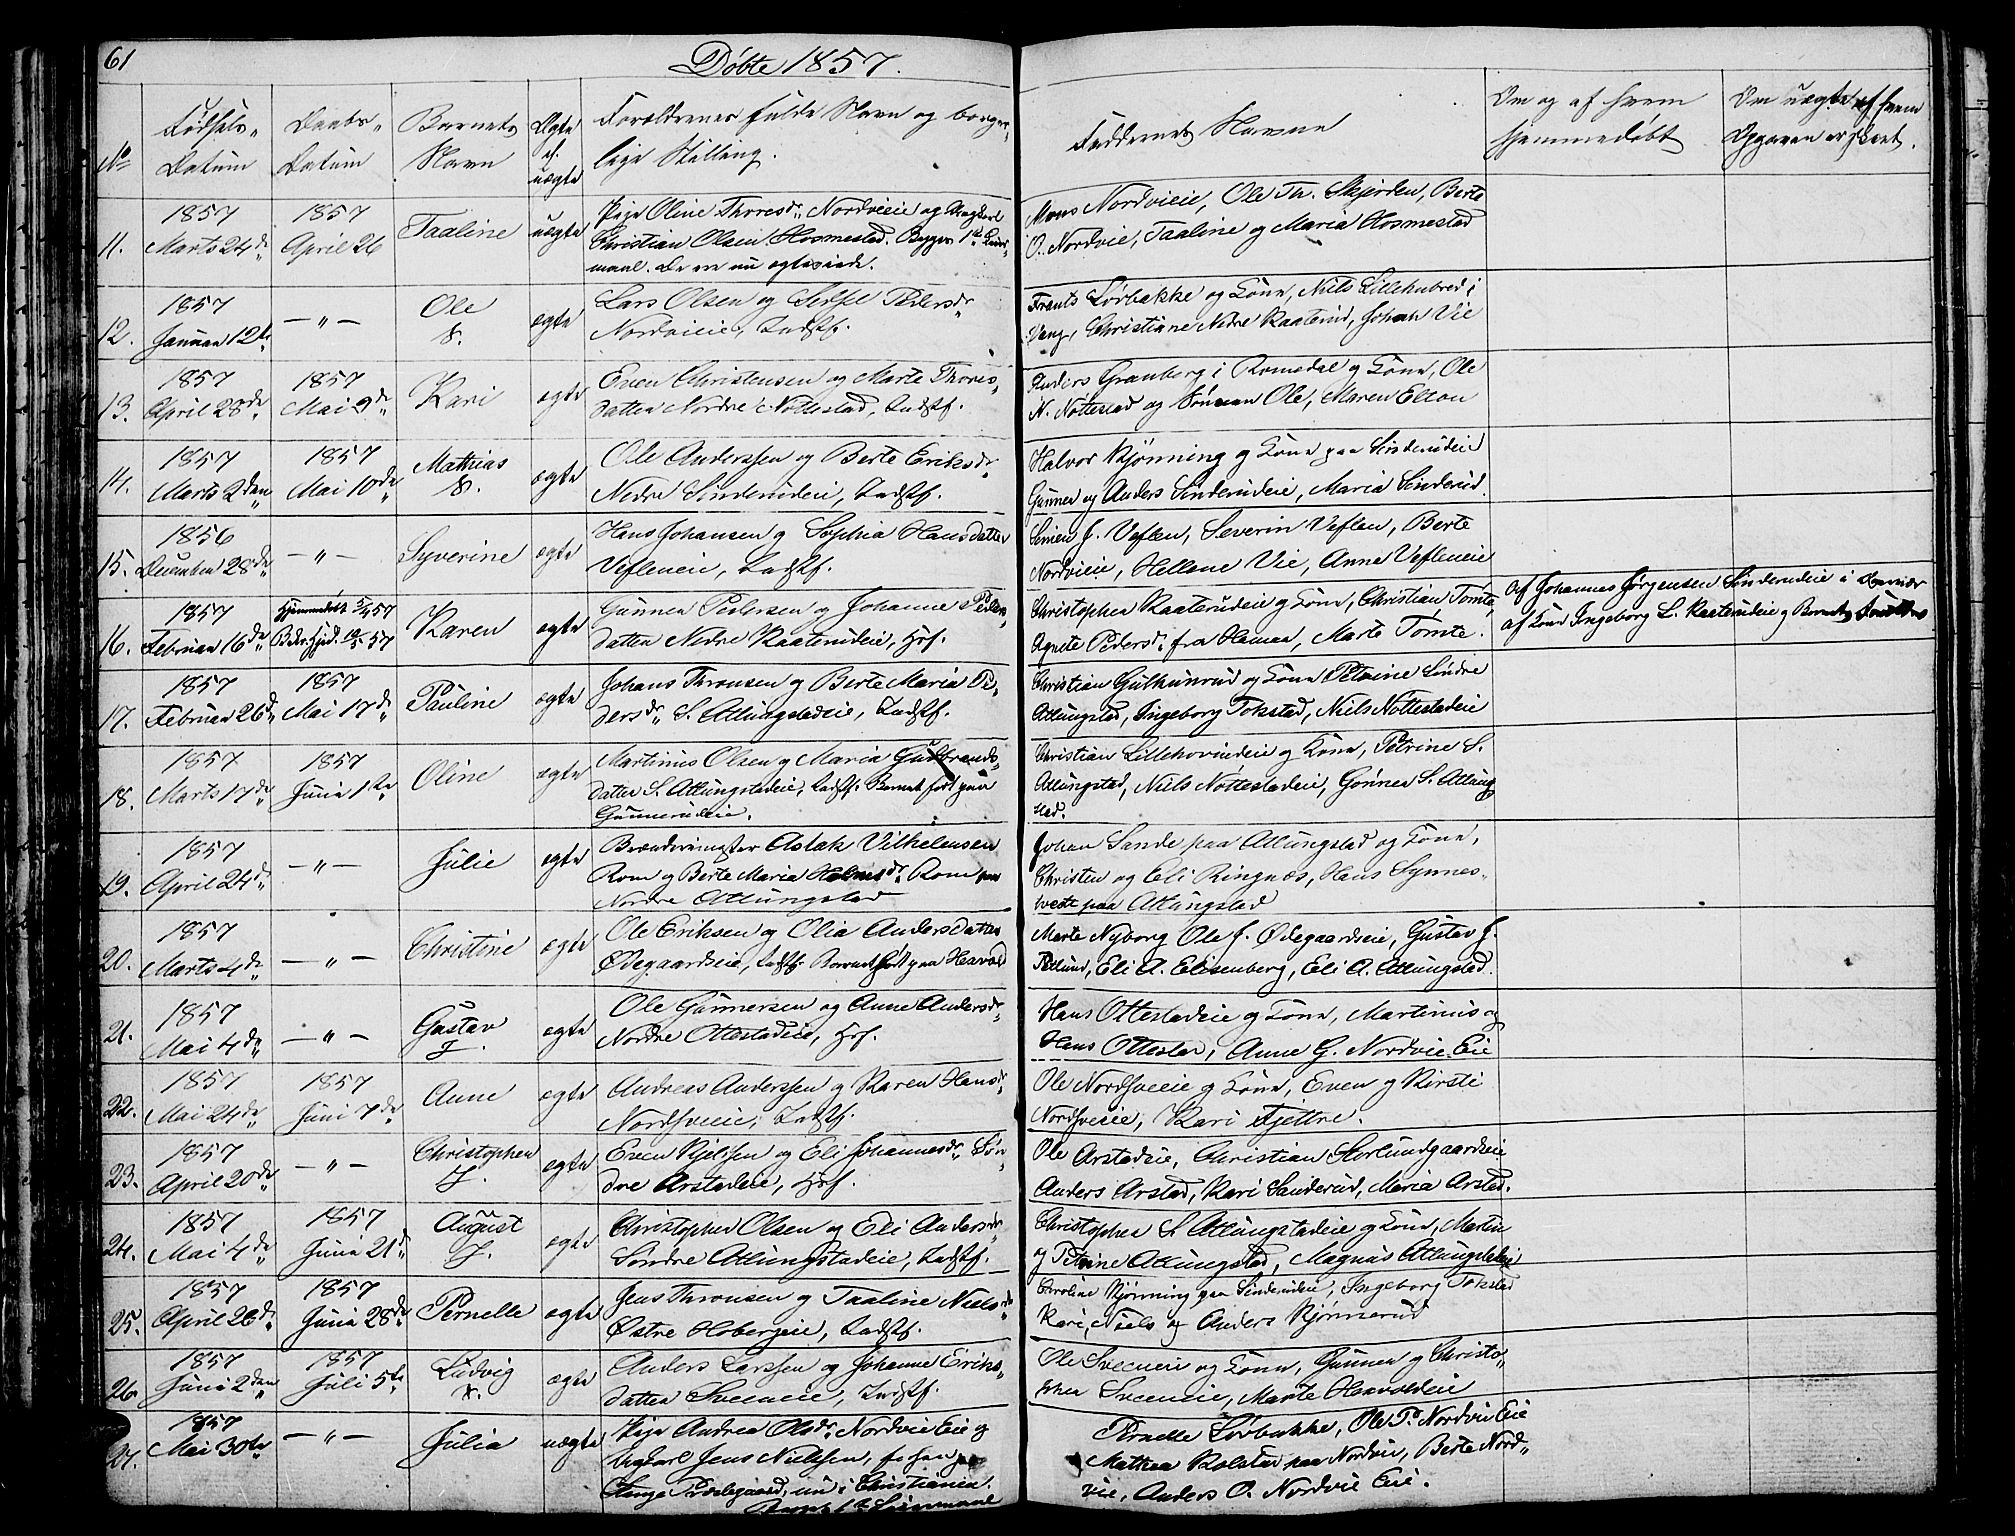 61
Døbte 1857.
No
Fødsels-
Datum
Daabs-
Datum
Barnets
Navn
Ægte
el.
uægte
Forældrenes fulde Navn og borger-
lige Stilling.
Faddernes Navne
Om og af hvem
hjemmedøbt
Om uægte, af hvem
Opgaven er skeet.
11.
1857
Marts 24de
1857
April 26
Taaline
uægte
Pige Oline Thoresdr Nordvieeie og Ungkarl
Christian Olsen Hosmestad. Begges 1ste Leier-
maal. De ere nu ægteviede.
Mons Nordvieeie, Ole Th. Skjerden, Berte
O. Nordvie, Taaline og Maria Hosmestad
12.
1857
Januar 12te
— " —
Ole
F.
ægte
Lars Olsen og Sidsel Pedersdr
Nordvieeie, Indstf.
Frants Lørbekke og Kone, Niels Lillehubred i
Vang, Christiane Nedre Kaaterud, Johan Vie
13.
1857
April 28de
1857
Mai 9de
Kari
ægte
Even Christensen og Marte Thores-
datter Nordre Nøttestad, Indstf.
Anders Granberg i Romedal og Kone, Ole
N. Nøttestad og Sønnen Ole, Maren Elton
14.
1857
Marts 2den
1857
Mai 10de
Mathias
F.
ægte
Ole Anderssen og Berte Eriksdr
Nedre Sinderudeie, Indstf.
Halvor Kjønning og Kone paa Sinderudeie
Gunner og Anders Sinderudeie, Maria Sinderud.
15.
1856
December 28de
— " —
Syverine
ægte
Hans Johansen og Sophia Hansdatter
Vefleneie, Indstf.
Simen J. Veflen, Severin Veflen, Berte
Nordvieeie, Hellene Vie, Anne Vefleneie
16.
1857
Februar 16de
Hjemmedøbt 5/4 57
Karen
ægte
Gunner Pedersen og Johanne Peders-
datter Nedre Kaaterudeie, Hsf.
Christopher Kaaterudeie og Kone, Christian Tomte,
Agnete Pedersdr fra Hamar, Marte Tomte.
Af Johannes Jørgensen Sinderudeie i
af Kone Ingeborg L. Kaaterudeie og Barnets
17.
1857
Februar 26de
1857
Mai 17de
Pauline
ægte
Johans Thronsen og Berte Maria Pe-
dersdr S. Atlungstadeie, Indstf.
Christian Gulhunrud og Kone Petrine Søndre
Atlungstad, Ingeborg Tokstad, Niels Nøttestadeie
18.
1857
Marts 17de
1857
Junii 1ste
Oline
ægte
Martinus Olsen og Maria Gulbrands-
datter S. Atlungstadeie, Indstf. Barnet født paa
Gunnerudeie.
Christian Lillehovindeie og Kone, Petrine S.
Atlungstad, Niels Nøttestadeie, Gønner S. Atlung-
stad.
19.
1857
April 24de
— " —
Julie
ægte
Brænderimester Aslak Vilhelmsen
Rom og Berte Maria Rom paa
Nordre Atlungstad
Johan Sande paa Atlungstad og Kone,
Christen og Eli Ringnæs, Hans Synnes-
tvedt paa Atlungstad
20.
1857
Marts 4de
— " —
Christine
ægte
Ole Eriksen og Olia Andersdatter
Ødegaardseie, Indstf. Barnet født paa
Marte Nyborg Ole J. Ødegaardseie, Gustav J.
Petlund, Eli A. Elisenberg, Eli A. Atlungstad.
21.
1857
Mai 4de
— " —
Gustav
F.
ægte
Ole Gunnersen og Anne Andersdr
Nordre Ottestadeie, Hsf.
Hans Ottestadeie og Kone, Martinus og
Hans Ottestad, Anne G. Nordvie Eie
22.
1857
Mai 24de
1857
Juni 7de
Anne
ægte
Andreas Anderssen og Karen Hansdr
Nordsveeie, Indstf.
Ole Nordsveeie og Kone, Even og Kirsti
Nordsveeie, Kari Fjettre.
23.
1857
April 20de
— " —
Christopher
F.
ægte
Even Kjelsen og Eli Johannesdr Søn-
dre Arstadeie, Hsf.
Ole Arstadeie, Christian Horlundgaardseie
Anders Arstad, Kari Sanderud, Maria Arstad.
24.
1857
Mai 4de
1857
Junii 21de
August
F.
ægte
Christopher Olsen og Eli Andersdr
Søndre Atlungstadeie, Indstf.
Christopher S. Atlungstadeie og Kone, Martin
og Petrine Atlungstad, Magnus Atlungstadeie
25.
1857
April 26de
1857
Junii 28de
Pernelle
ægte
Jens Thronsen og Taaline Nielsdr
Østre Hobergeie, Indstf.
Caroline Kjønning paa Sinderudeie, Ingeborg Tokstad
Kari, Niels og Anders Kjønnerud
26.
1857
Juni 2den
1857
Juli 5te
Ludvig
F.
ægte
Anders Larssen og Johanne Eriks-
datter Sveeneie, Indstf.
Ole Sveeneie og Kone, Gunner og Christo-
pher Sveeneie, Marte Harvoldeie
27.
1857
Mai 30te
— " —
Julia
uægte
Pige Andrea Olsdr Nordvie Eie og
Ungkarl Jens Nielssen, før han paa
Stange Præstegaard, nu i Christiania.
Begges 1ste Leiermaal
Pernelle Lørbekke, Ole P. Nordvie Eie
Mathea Rolstad paa Nordvie, Berte Nord-
vie, Anders O. Nordvie Eie.